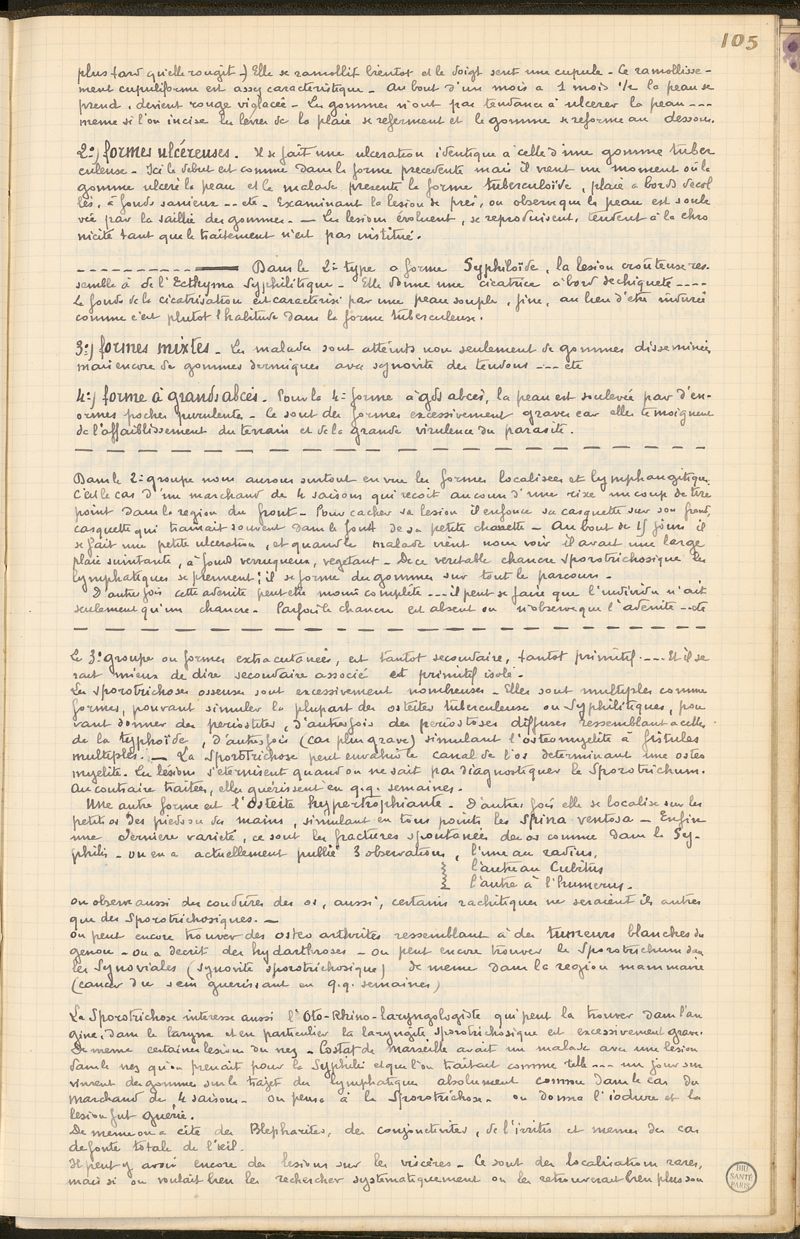 105
plus tard qu'elle rougit -) Elle se ramollit bientot et le doigt sent une cupule - Ce ramollisse-
ment cupuliforme est assez caracteristique - Au bout d'un mois a 1 mois 1/2 la peau se
prend, devient rouge violacée - Les gommes n'ont pas tendance a ulcerer la peau ---
meme si l'on incise les levres de la plaie se referment et le gomme se reforme au dessous.
2º) formes ulcéreuses. Il se fait une ulceration identique a celle d'une gomme tuber
culeuse - Ici le debut est comme dans la forme precedente mais il vient un moment où la
gomme ulcère la peau et le malade presente la forme tuberculoïde, plaie a bords decol
lés, à fonds sanieux --- etc - Examinant la lesion de près, on observe que la peau est soule
vée par la saillie des gommes. — Les lesions évoluent, se reproduisent, tendent à la chro
nicité tant que le traitement n'est pas institué.
---------- Dans le 2e type a forme Syphiloïde, la lesion croûteuse res-
semble à de l'Ecthyma Syphilitique - Elle donne une cicatrice a bord dechiqueté ----
Le fonds de la cicatrisation est caracterisé par une peau souple, fine, au lieu d'etre indurée
comme c'est plutot l'habitude dans la forme tuberculeuse.
3º) formes mixtes - Les malades sont atteints non seulement de gommes disseminées
mais encore de gommes dermiques avec synovite des tendons --- etc
4º) forme à grands abcès - Pour la 4e forme à gds abcès, la peau est soulevée par d'én-
ormes poches purulentes - Ce sont des formes excessivement graves car elles temoignent
de l'affaiblissement du terrain et de la grande virulence du parasite.
Dans le 2e groupe nous aurons surtout en vue les formes localisées et lymphangitiques.
C'est le cas d'un marchand de 4 saisons qui reçoit au cours d'une rixe un coup de tire
point dans la region du front - Pour cacher sa lesion il enfonce sa casquette sur son front,
casquette qui trainait souvent dans le fond de sa petite charrette - Au bout de 15 jours il
se fait une petite ulceration, et quand le malade vient nous voir il avait une large
plaie suintante, à fond verruqueux, vegetant - De ce veritable chancre sporotrichosique les
lymphatiques se prennent; il se forme des gommes sur tout le parcours -
D'autres fois cette adenite peut etre moins complète --- il peut se faire que l'individu n'ait
seulement qu'un chancre - Parfois le chancre est absent on n'observe que l'adenite --- etc
Le 3e groupe ou formes extracutanées, est tantot secondaire, tantot primitif --- Et il se
rait mieux de dire secondaire associé et primitif isolé.
Les sporotrichoses osseuses sont excessivement nombreuses - Elles sont multiples comme
formes, pouvant simuler la plupart des osteites tuberculeuse ou Syphilitiques, pou
vant donner des periostites, d'autres fois des periostoses diffuses ressemblant a celles
de la typhoïde, d'autres fois (cas plus grave) simulant l'osteomyelite à fistules
multiples. — La Sporotrichose peut envahir le canal de l'os determinant une osteo
myelite. Les lesions s'eternisent quand on ne sait pas diagnostiquer le Sporotrichum.
Au contraire traitées, elle guérissent en q.q. semaines.
Une autre forme est l'Osteite hypertrophiante - D'autres fois elle se localise sur les
petits os des pieds ou des mains, simulant en tous points les spina ventosa - Enfin
une derniere varieté, ce sont les fractures spontanées des os comme dans la Sy-
philis - on en a actuellement publié 3 observations, l'une au radius,
l'autre au Cubitus
l'autre à l'humerus.
on observe aussi des coudures des os, aussi, certains rachitiques ne seraient ils autres
que des Sporotrichosiques. —
on peut encore trouver des osteo arthrites ressemblant à des tumeurs blanches du
genou - on a decrit des hydarthroses - on peut encore trouver le Sporotrichum dans
les Synoviales (synovite sporotrichosique) De meme dans la region mammaire
(cancer du sein guerissant en q.q. semaines)
La Sporotrichose interesse aussi l'Oto-Rhino-laryngologiste qui peut la trouver dans l'an
gine, dans le larynx et en particulier la laryngite sporotrichosique est excessivement grave.
De meme certaines lesions du nez - Costat de Marseille avait un malade avec une lesion
dans le nez qu'on prenait pour la Syphilis et que l'on traitait comme telle --- un jour sur
vinrent des gommes sur le trajet des lymphatiques absolument comme dans le cas du
marchand de 4 saisons. On pensa à la Sporotrichose. on donna l'iodure et la
lesion fut guérie.
De meme on a cité des Blepharites, des conjonctivites, de l'iritis et memes des cas
de fonte totale de l'œil.
Il peut y avoir encore des lesions sur les viscères - Ce sont des localisations rares,
mais si on voulait bien les rechercher systematiquement on les retrouverait bien plus sou
BIU
SANTÉ
PARIS